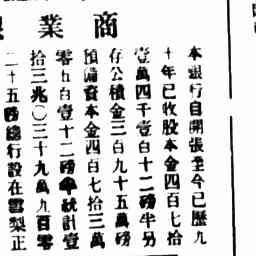 商業
本銀行自開張至今已歷九
十年已收股本金四百七拾
壹萬四千壹百十二磅半另
存公積金三百九十五萬磅
預備資本金四百七拾三萬
零五百壹十二磅半統計壹
拾三兆〇三十九萬九百零
二十五磅總行設在雪梨正